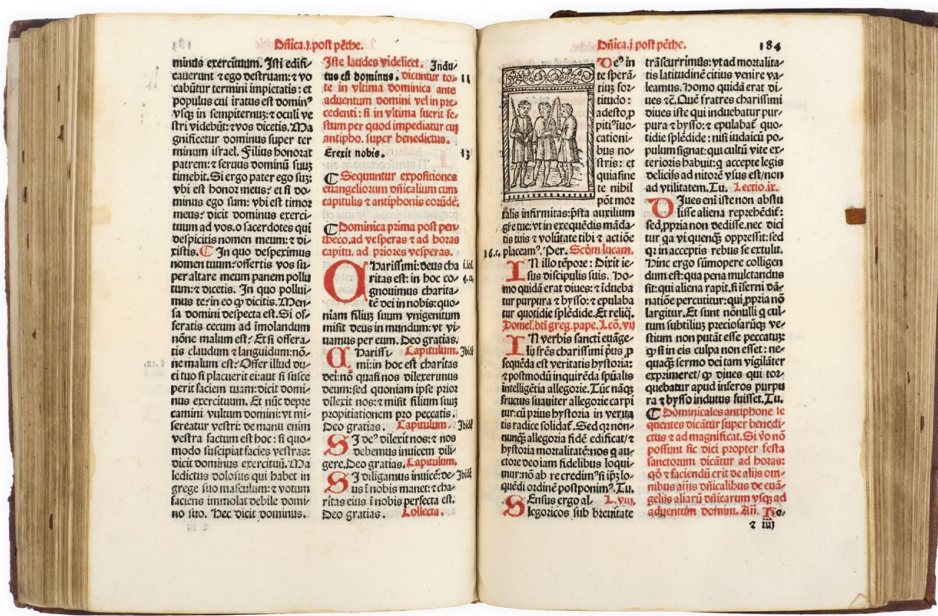 Dñica.j.post pẽthe.
minus exercituum. Isti edifi-
cauerunt ⁊ ego destruam: ⁊ vo
cabũtur termini impietatis: et
populus cui iratus est dominꝰ
vsqȝ in sempiternuȝ: ⁊ oculi ve
stri videbũt: ⁊ vos dicetis. Ma
gnificetur dominus super ter
minum israel. Filius honorat
patrem: ⁊ seruus dominũ suuȝ
timebit. Si ergo pater ego suȝ:
vbi est honor meus: et si do-
minus ego sum: vbi est timor
meus: dicit dominus exerci-
tuum ad vos.o sacerdotes qui
despicitis nomen meum: ⁊ di-
xistis. ¶ In quo despeximus
nomen tuum: offertis vos su-
per altare meum panem pollu
tum: ⁊ dicetis. In quo pollui-
mus te: in eo ꝙ dicitis. Men-
sa domini despecta est. Si of-
feratis cecum ad imolandum
nõne malum est: Et si offera-
tis claudum ⁊ languidum: nõ-
ne malum est: Offer illud du-
ci tuo si placuerit ei: aut si susce
perit faciem tuam: dicit domi-
nus exercituum. Et nũc depre
camini vultum domini: vt mi-
sereatur vestri: de manu enim
vestra factum est hoc: si quo-
modo suscipiat facies vestras:
dicit dominus exercituũ. Ma
ledictus dolosus qui habet in
grege suo masculum: ⁊ votum
faciens immolat debile domi-
no suo. Hec dicit dominus.
Iste laudes videlicet. Indu-
tus est dominus. dicuntur to-
te in vltima dominica ante
aduentum domini vel in pre-
cedenti: si in vltima fuerit fe-
stum per quod impediatur cuȝ
antipho. super benedictus.
Erexit nobis.
11
13
¶ Sequuntur expositiones
euangeliorum dñicalium cum
capitulis ⁊ antiphonis eorũdẽ.
¶ Dominica prima post pen
theco. ad vesperas ⁊ ad horas
capitu. ad priores vesperas.
CHarissimi: deus cha
ritas est: in hoc co-
gnouimus charita-
tẽ dei in nobis: quo-
niam filiuȝ suum vnigenitum
misit deus in mundum: vt vi-
uamus per eum. Deo gratias.
CHarissi- Capitulum.
mi: in hoc est charitas
dei: nõ quasi nos dilexerimus
deum: sed quoniam ipse prior
dilexit nos: ⁊ misit filium suuȝ
propitiationem pro peccatis.
Deo gratias. Capitulum.
SI deꝰ dilexit nos: ⁊ nos
debemus inuicem dili-
gere. Deo gratias. Capitulum.
SI diligamus inuicẽ: de-
us ĩ nobis manet: ⁊ cha-
ritas eius ĩ nobis perfecta est.
Deo gratias. Collecta.
Dñica.j. post pẽthe.
184
Deꝰ in
te sperã-
tiuȝ for-
titudo:
adesto, p
pitiꝰ iuo-
cationi-
bus no-
stris: et
quia sine
te nihil
põt mor
talis infirmitas: p̃sta auxilium
grẽ tue: vt in exequẽdis mãda-
tis tuis ⁊ volũtate tibi ⁊ actiõe
placeamꝰ. Per. Scõm lucam.
16.c.
IN illo tẽpore: Dixit ie-
sus discipulis suis. Ho-
mo quidã erat diues: ⁊ iduebа
tur purpura ⁊ bysso: ⁊ epulaba
tur quotidie splẽdide. Et reliq̃.
Homel. bti greg. pape. Lcõ. vij
IN verbis sancti euãge-
lij frẽs charissimi prius ꝓ
sequẽda est veritatis hystoria:
⁊ postmodũ inquirẽda spũalis
intelligẽtia allegorie. Tũc nãqȝ
fructus suauiter allegorie carpi
tur: cũ prius hystoria in verita
tis radice solidat̃. Sed qꝛ non-
nunq̃ allegoria fidẽ edificat: ⁊
hystoria moralitatẽ: nos q au-
ctore deo iam fidelibus loqui-
mur: nõ ab re credimꝰ si ip̃ȝ lo-
quẽdi ordinẽ postponimꝰ. Tu.
SEnsus ergo al- L. viij.
legoricos sub breuitate
trãscurrimus: vt ad mortalita-
tis latitudinẽ citius venire va-
leamus. Homo quidã erat di-
ues ⁊c̃. Quẽ fratres charissimi
diues iste qui induebatur pur-
pura ⁊ bysso: ⁊ epulabat̃ quo-
tidie splẽdide: nisi iudaicũ po-
pulum signat: qui cultũ vite ex-
terioris habuit: q accepte legis
delicijs ad nitorẽ vsus est: non
ad vtilitatem. Tu. Lectio. ix.
DIues eni iste non abstu
lisse aliena reprehẽdit̃:
sed ꝓpria non dedisse. nec dici
tur qa vi quenq̃ oppressit: sed
q: in acceptis rebus se extulit.
Hinc ergo sũmopere colligen
dum est: qua pena mulctandus
sit: qui aliena rapit, si iferni dã-
natiõe percutitur: qui ꝓpria nõ
largitur. Et sunt nõnulli q cul-
tum subtiliuȝ preciosarũqȝ ve-
stium non putãt esse peccatuȝ:
q̃ si in eis culpa non esset: ne-
quaq̃ sermo dei tam vigilãter
exprimeret: ꝙ diues qui tor-
quebatur apud inferos purpu
ra ⁊ bysso indutus fuisset. Tu.
¶ Dominicales antiphone se
quentes dicãtur super benedi-
ctus ⁊ ad magnificat. Si vo nõ
possunt sic dici propter festa
sanctorum dicãtur ad horas:
qȝ ⁊ faciendi erit de alijs om-
nibus añis dñicalibus de euã-
gelijs aliarũ dñicarum vsqȝ ad
aduentum domini. Añ. Ho-
⁊ iiij